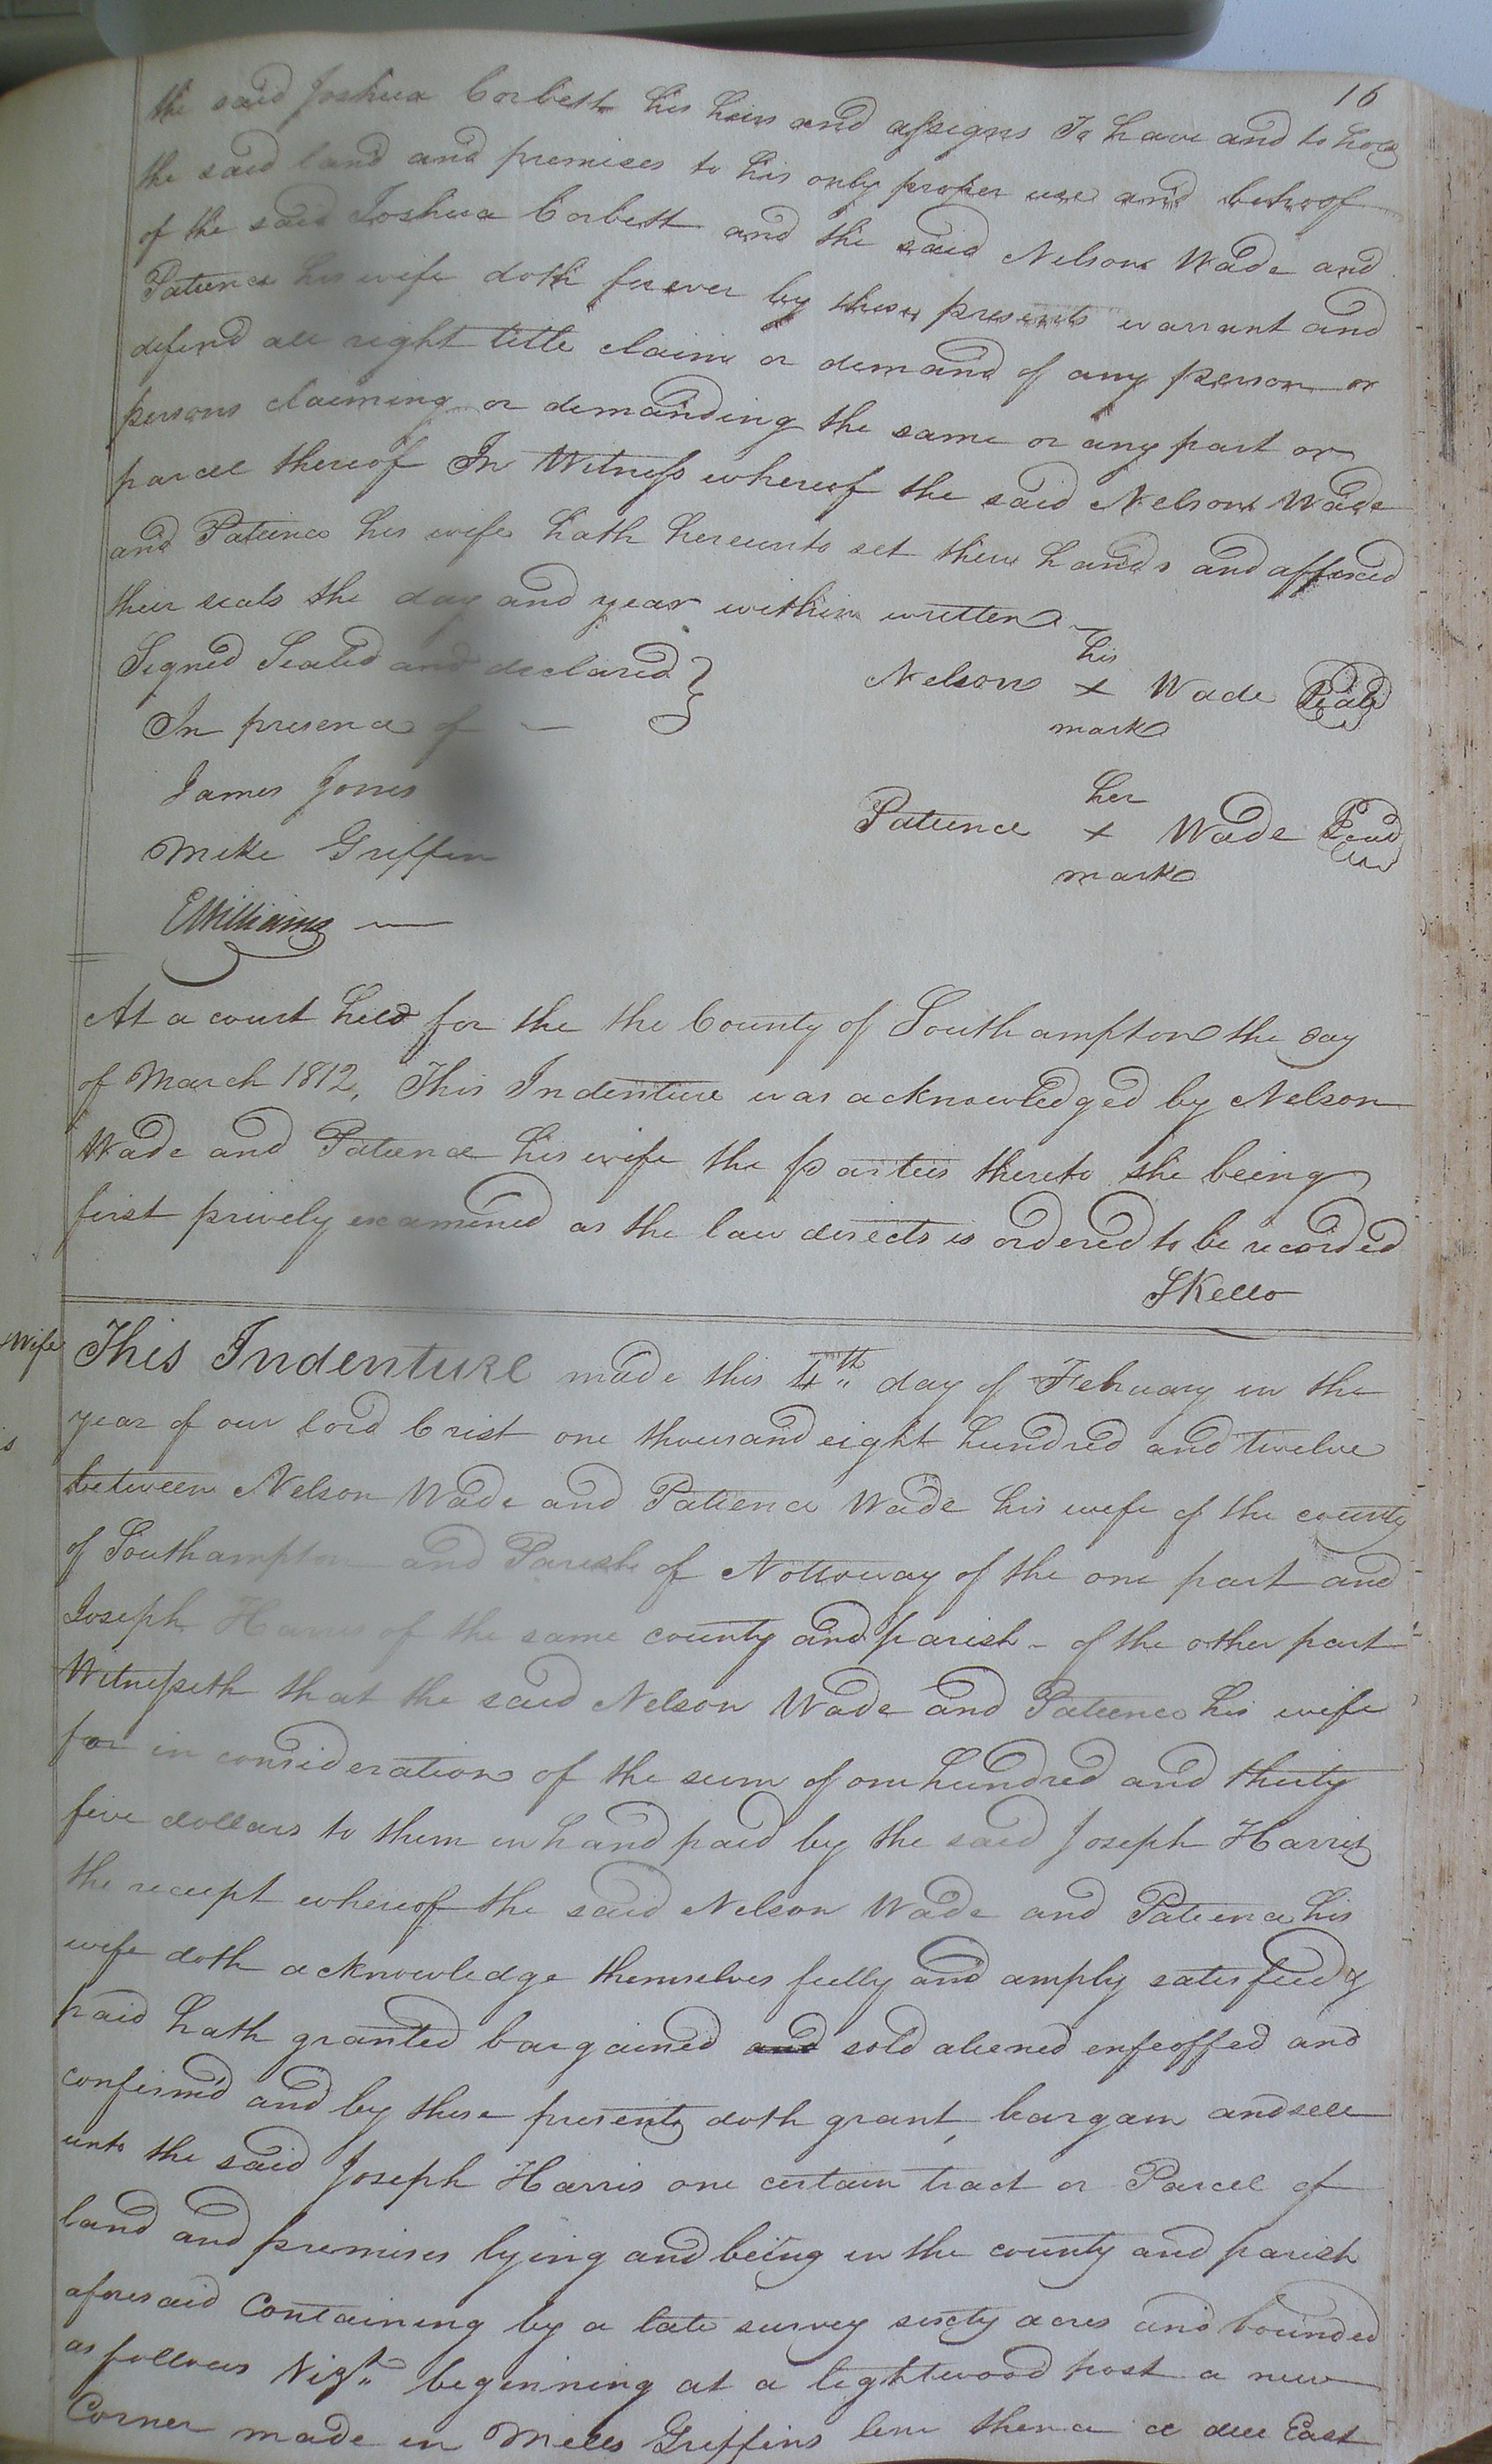 16
the said Joshua Corbett his heirs and assigns To have and to hold
the said land and premises to his only proper use and behoof
of the said Joshua Corbett and the said Nelson Wade and
Patience his wife doth forever by these presents warrant and
defend all right title claim or demand of any person or
persons claiming or demanding the same or any part or
parcel thereof In Witness whereof the said Nelson Wade
and Patience his wife hath hereunto set their hands and affixed
their seals the day and year within written
Signed Sealed and declared }
In presence of
James Jones
Mike Griffin
EWilliams
his
Nelson x Wade Seal
mark
her
Patience x Wade Seal
mark
At a court held for the the County of Southampton the day
of March 1812, This Indenture was acknowledged by Nelson
Wade and Patience his wife the parties thereto she being
first privily examined as the law directs is ordered to be recorded
SKello
Wife
This Indenture made this 4th day of February in the
year of our lord Crist one thousand eight hundred and twelve
between Nelson Wade and Patience Wade his wife of the county
of Southampton and Parish of Nottoway of the one part and
Joseph Harris of the same county and parish - of the other part
Witnesseth that the said Nelson Wade and Patience his wife
for in consideration of the sum of one hundred and thirty
five dollars to them in hand paid by the said Joseph Harris
the receipt whereof the said Nelson Wade and Patience his
wife doth acknowledge themselves fully and amply satisfied &
paid hath granted bargained and sold aliened enfeoffed and
confirm'd and by these presents doth grant, bargain and sell
unto the said Joseph Harris one certain tract or Parcel of
land and premises lying and being in the county and parish
aforesaid Containing by a late survey sixty acres and bounded
as follows Vizt. beginning at a lightwood post a new
Corner made in Mills Griffins line thence a due East